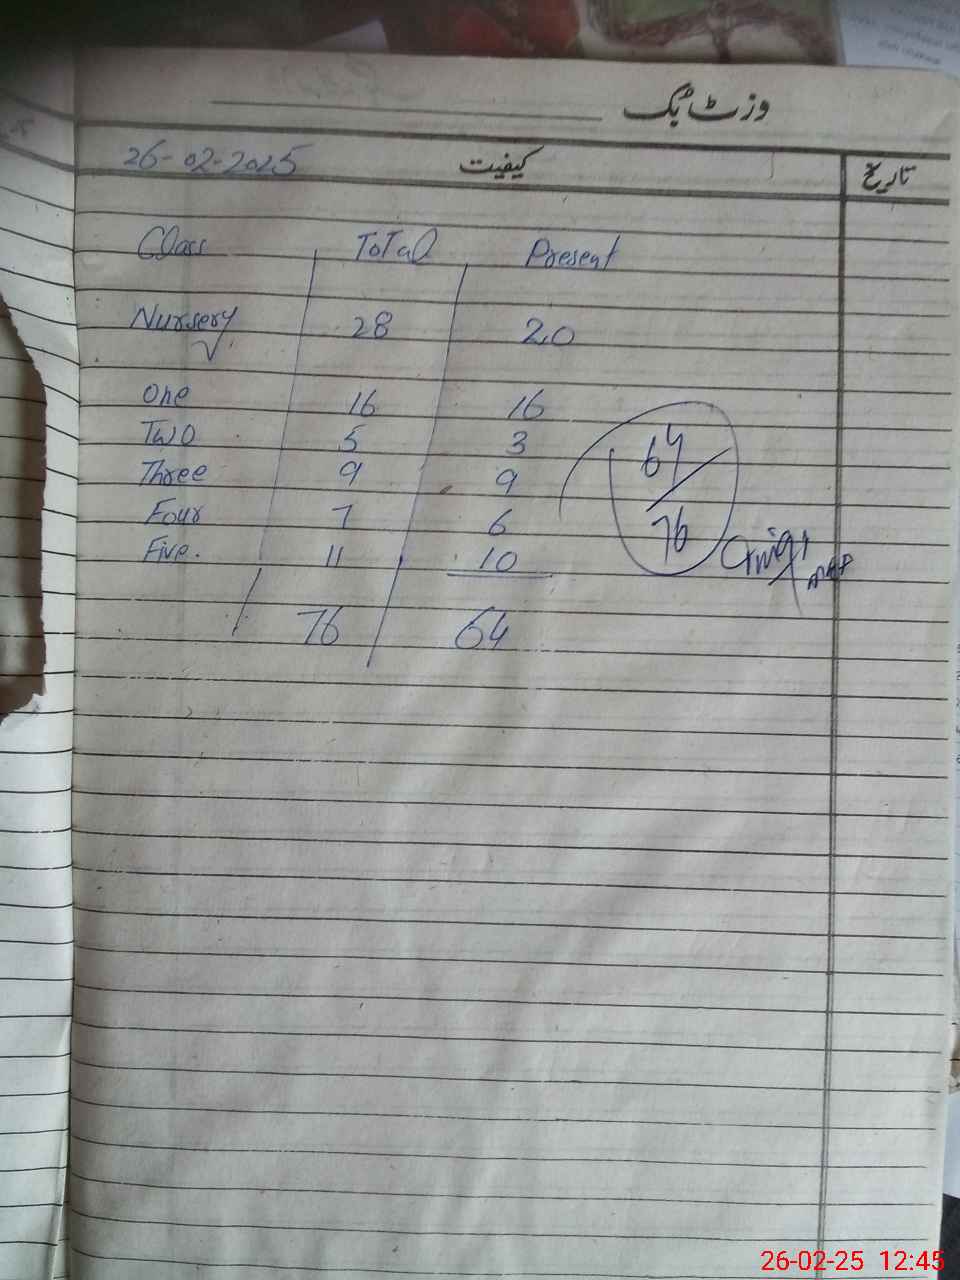 وزٹ بک
تاریخ کیفیت 26-02-2025
Class Total Present
Nursery 28 20
One 16 16
Two 5 3
Three 9 9
Four 7 6
Five. 11 10
76 64
64/76
26-02-25 12:45